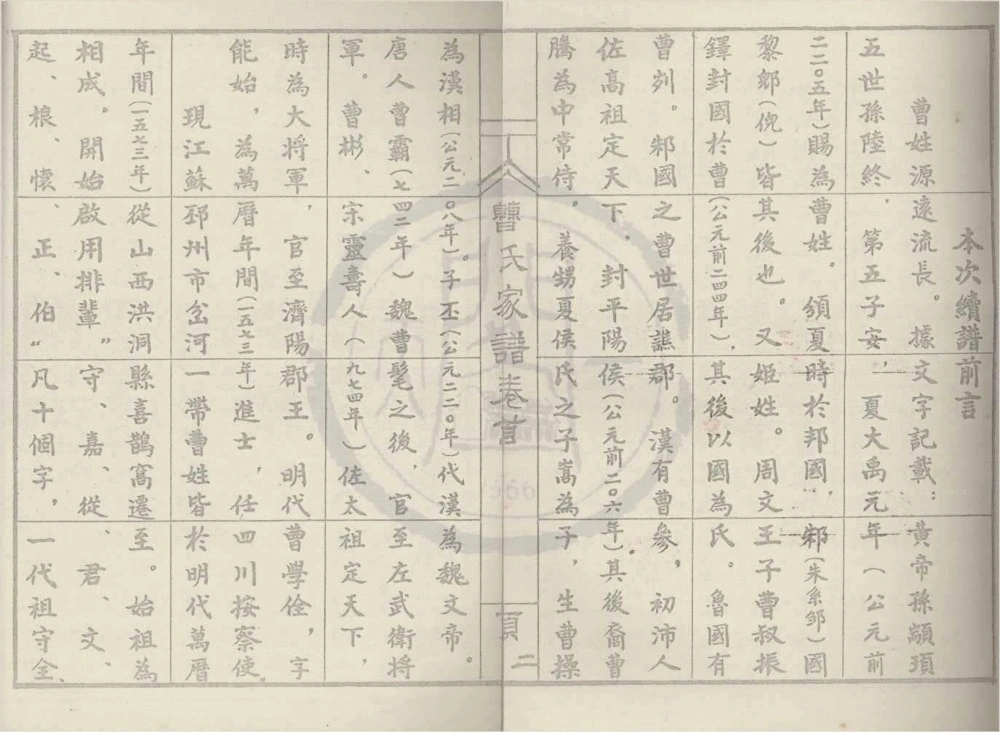 本次續譜前言
曹姓源遠流長。據文字記載：黃帝孫顓頊
五世孫陸終，第五子安，夏大禹元年（公元前
二二〇五年）賜為曹姓。頒夏時於邦國，邾（朱系邹）國
黎郳（倪）皆其後也。又姬姓。周文王子曹叔振
鐸封國於曹（公元前二四四年），其後以國為氏。魯國有
曹刿。邾國之曹世居譙郡。漢有曹參，初沛人
佐高祖定天下，封平陽侯（公元前二〇六年）其後裔曹
騰為中常侍。養甥夏侯氏之子嵩為子，生曹操
曹氏家譜卷首
頁二
為漢相（公元二〇八年）。子丕（公元二二〇年）代漢為魏文帝。
唐人曹霸（七四二年）魏曹髦之後，官至左武衛將
軍。曹彬、宋靈壽人（九七四年）佐太祖定天下，
時為大將軍，官至濟陽郡王。明代曹學佺，字
能始，為萬曆年間（一五七三年）進士，任四川按察使。
現江蘇邳州市岔河一帶曹姓皆於明代萬曆
年間（一五七三年）從山西洪洞縣喜鵲窩遷至。始祖為
相成。開始啟用排輩“守、嘉、從、君、文、
起、根、懷、正、伯“凡十個字，一代祖守全、